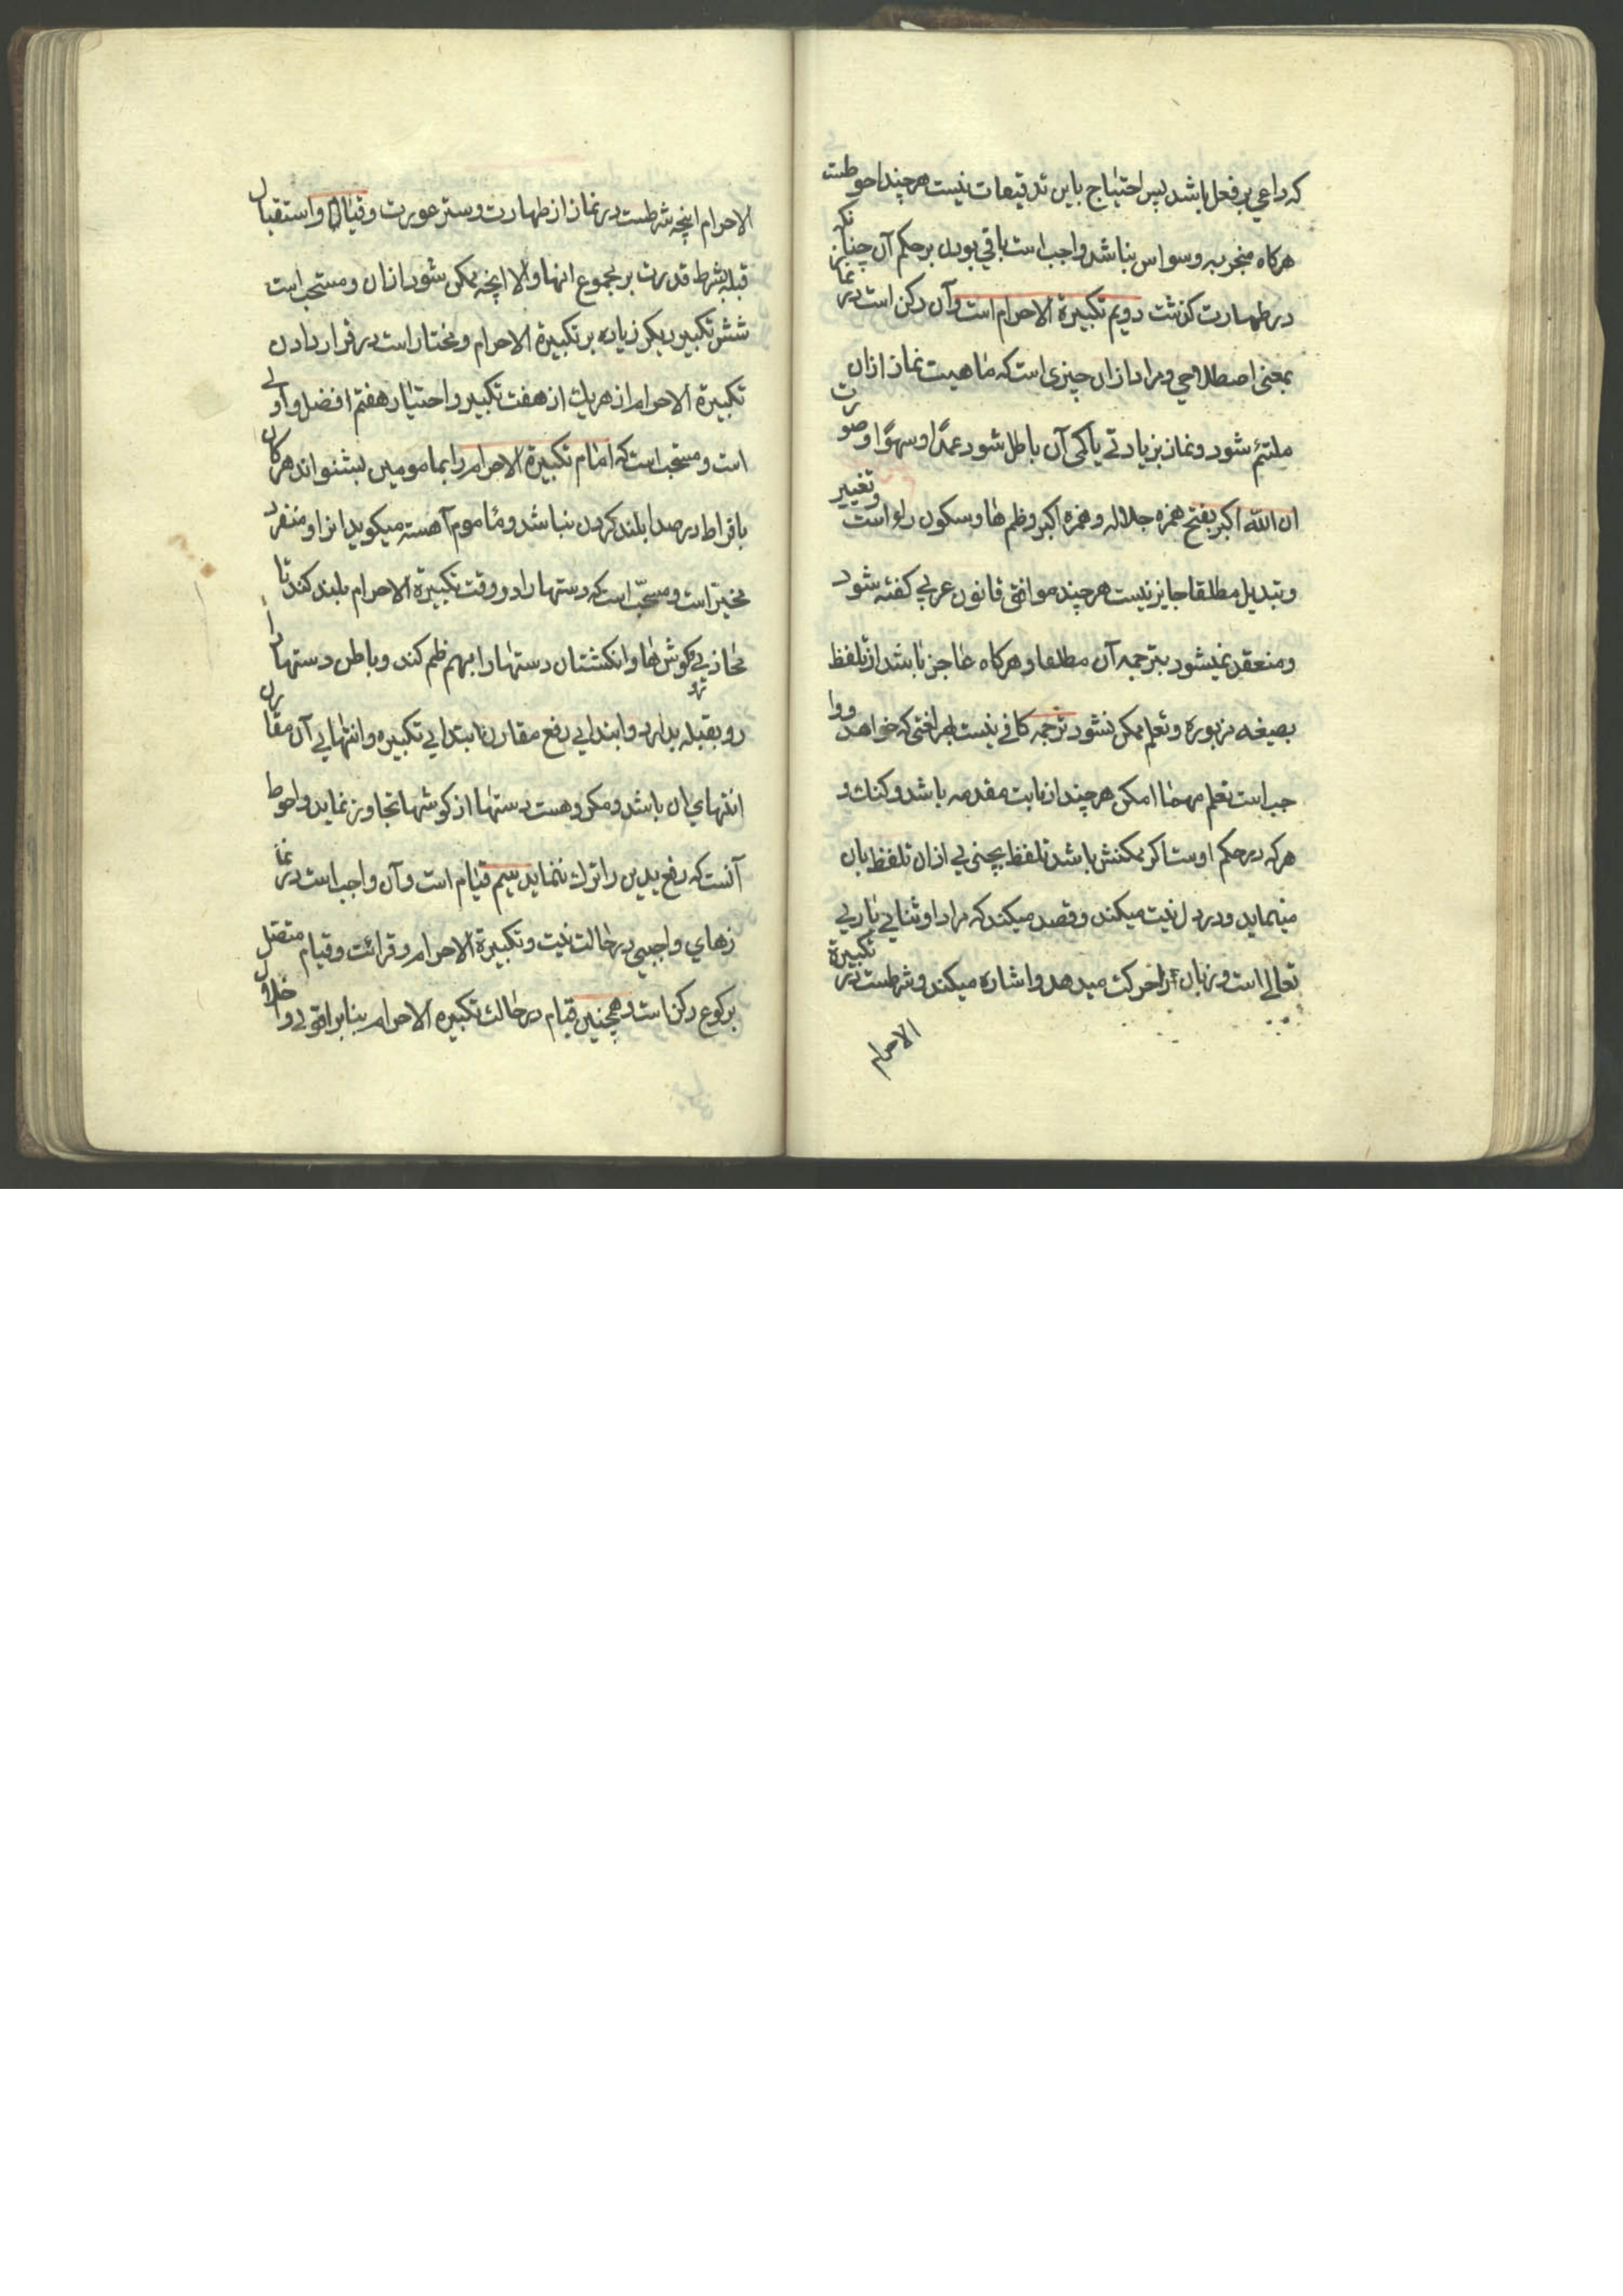 که داعی بر فعل باشد پس احتیاج باین تدقیقات نیست هر چند احوطست
هرکاه منجر به وسواس نباشد واجب است باقی بودن بر حکم آن چنانکه
در طهارت کذشت دویم تکبیرة الاحرام است وآن رکن است در نماز
بمعنی اصطلاحی ومراد از ان چیزی است که ماهیت نماز ازان
ملتئم شود ونماز بزیادتی یا کمی آن باطل شود عمدًا وسهوًا وصورت
ان الله اکبر بفتح همزه جلاله وهمزه اکبر وظم ها وسکون را است وتغییر
وتبدیل مطلقا جایز نیست هر چند موافق قانون عربی کفته شود
ومنعقد نمیشود بترجمه آن مطلقا وهرکاه عاجز باشد از تلفظ
بصیغه مزبوره وتعلم ممکن نشود ترجمه کافی نیست بهر لغتی که خواهد ووا
جب است تعلم مهما امکن هر چند از بابت مقدمه باشد وکنك و
هر که در حکم اوست اکر ممکنش باشد تلفظ بچیزی از ان تلفظ بان
مینماید ودر دل نیت میکند وقصد میکند که مراد او ثنای باری
تعالی است وزبان را حرکت میدهد واشاره میکند وشرطست در تکبیرة
الاحرام
الاحرام انچه شرطست در نماز از طهارت وستر عورت وقیام واستقبال
قبله بشرط قدرت بر مجموع انها والا انچه ممکن شود ازان ومستحب است
شش تکبیر دیکر زیاده بر تکبیرة الاحرام ومختار است در قرار دادن
تکبیرة الاحرام از هریك از هفت تکبیر واختیار هفتم افضل واولی
است ومستحب است که امام تکبیرة الاحرام را بمامومین بشنواند هرکاه
بافراط در صدا بلند کردن نباشد وماموم آهسته میکوید انرا ومنفرد
مخیر است ومستحبّ است که دستها را در وقت تکبیرة الاحرام بلند کند تا
محاذی کوش ها وانکشتان دستها را بهم ظم کند وباطن دستها را
رو بقبله بدارد وابتدای رفع مقارن ابتدای تکبیره وانتهای آن مقارن
انتهای ان باشد ومکروهست دستها از کوشها تجاوز نماید واحوط
آنست که رفع یدین را ترك ننماید سیم قیام است وآن واجب است در نما
زهای واجبی در حالت نیت وتکبیرة الاحرام وقرائت وقیام متصل
برکوع رکن است وهمچنین قیام در حالت تکبیره الاحرام بنابر اقوی واخلال